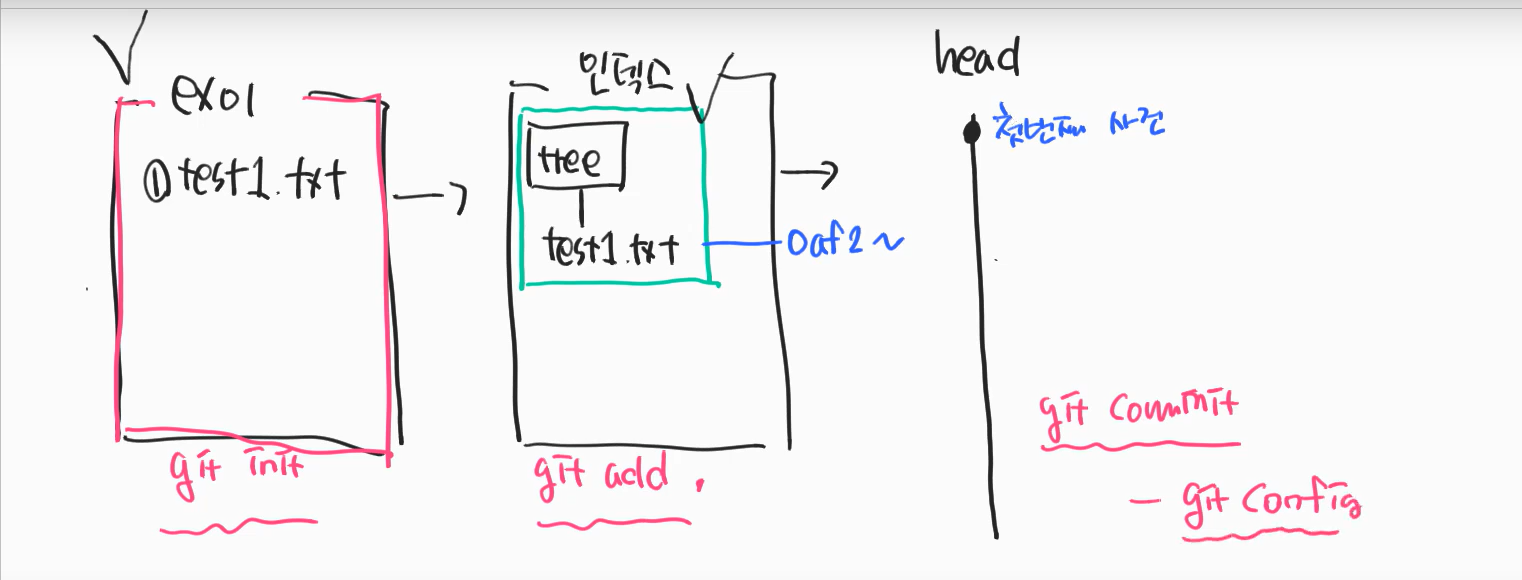 ex01
① test1.txt
git init
인덱스
tree
test1.txt
0af2~
git add .
head
첫번째 사건
git commit
- git config